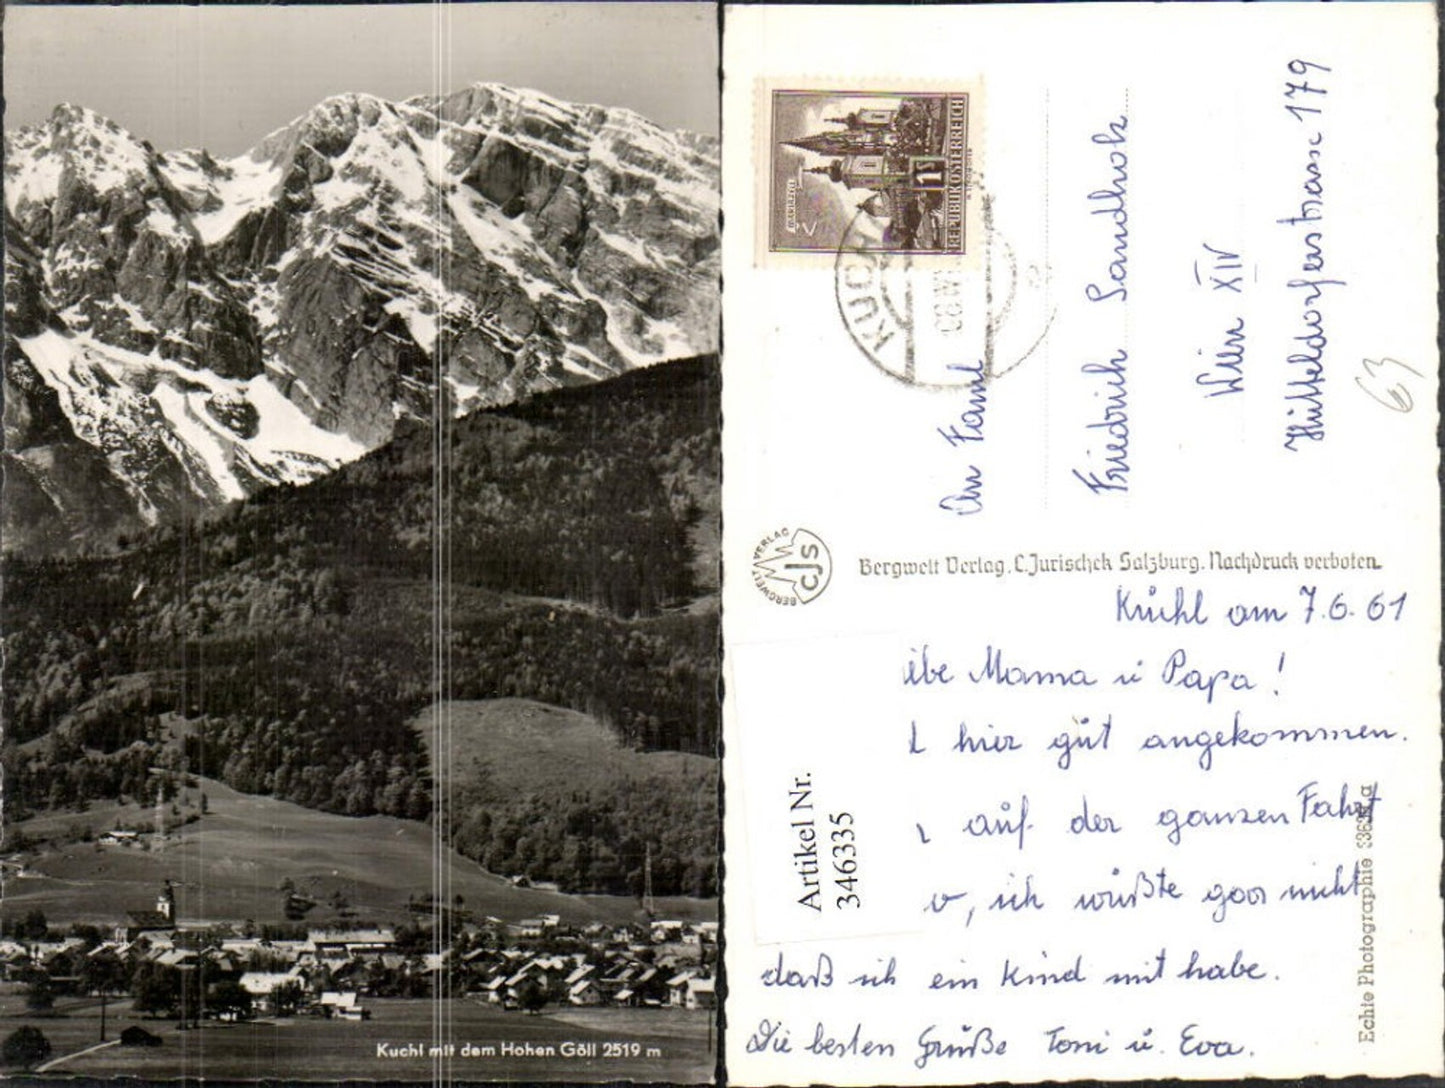 Kuchl mit dem Hohen Göll 2519 m
MARIAZELL
REPUBLIK ÖSTERREICH
KUCHL
An Faml
Friedrich Sandholz
Wien XIV
Hütteldorferstrasse 179
63
BERGWELT VERLAG
CJS
Bergwelt Verlag, C. Jurischek Salzburg. Nachdruck verboten.
Kuchl am 7.6.61
ibe Mama u Papa!
hier gut angekommen.
auf der ganzen Fahrt
v, ich wüßte gar nicht
daß ich ein Kind mit habe.
Die besten Grüße Toni u. Eva.
Artikel Nr.
346335
Echte Photographie